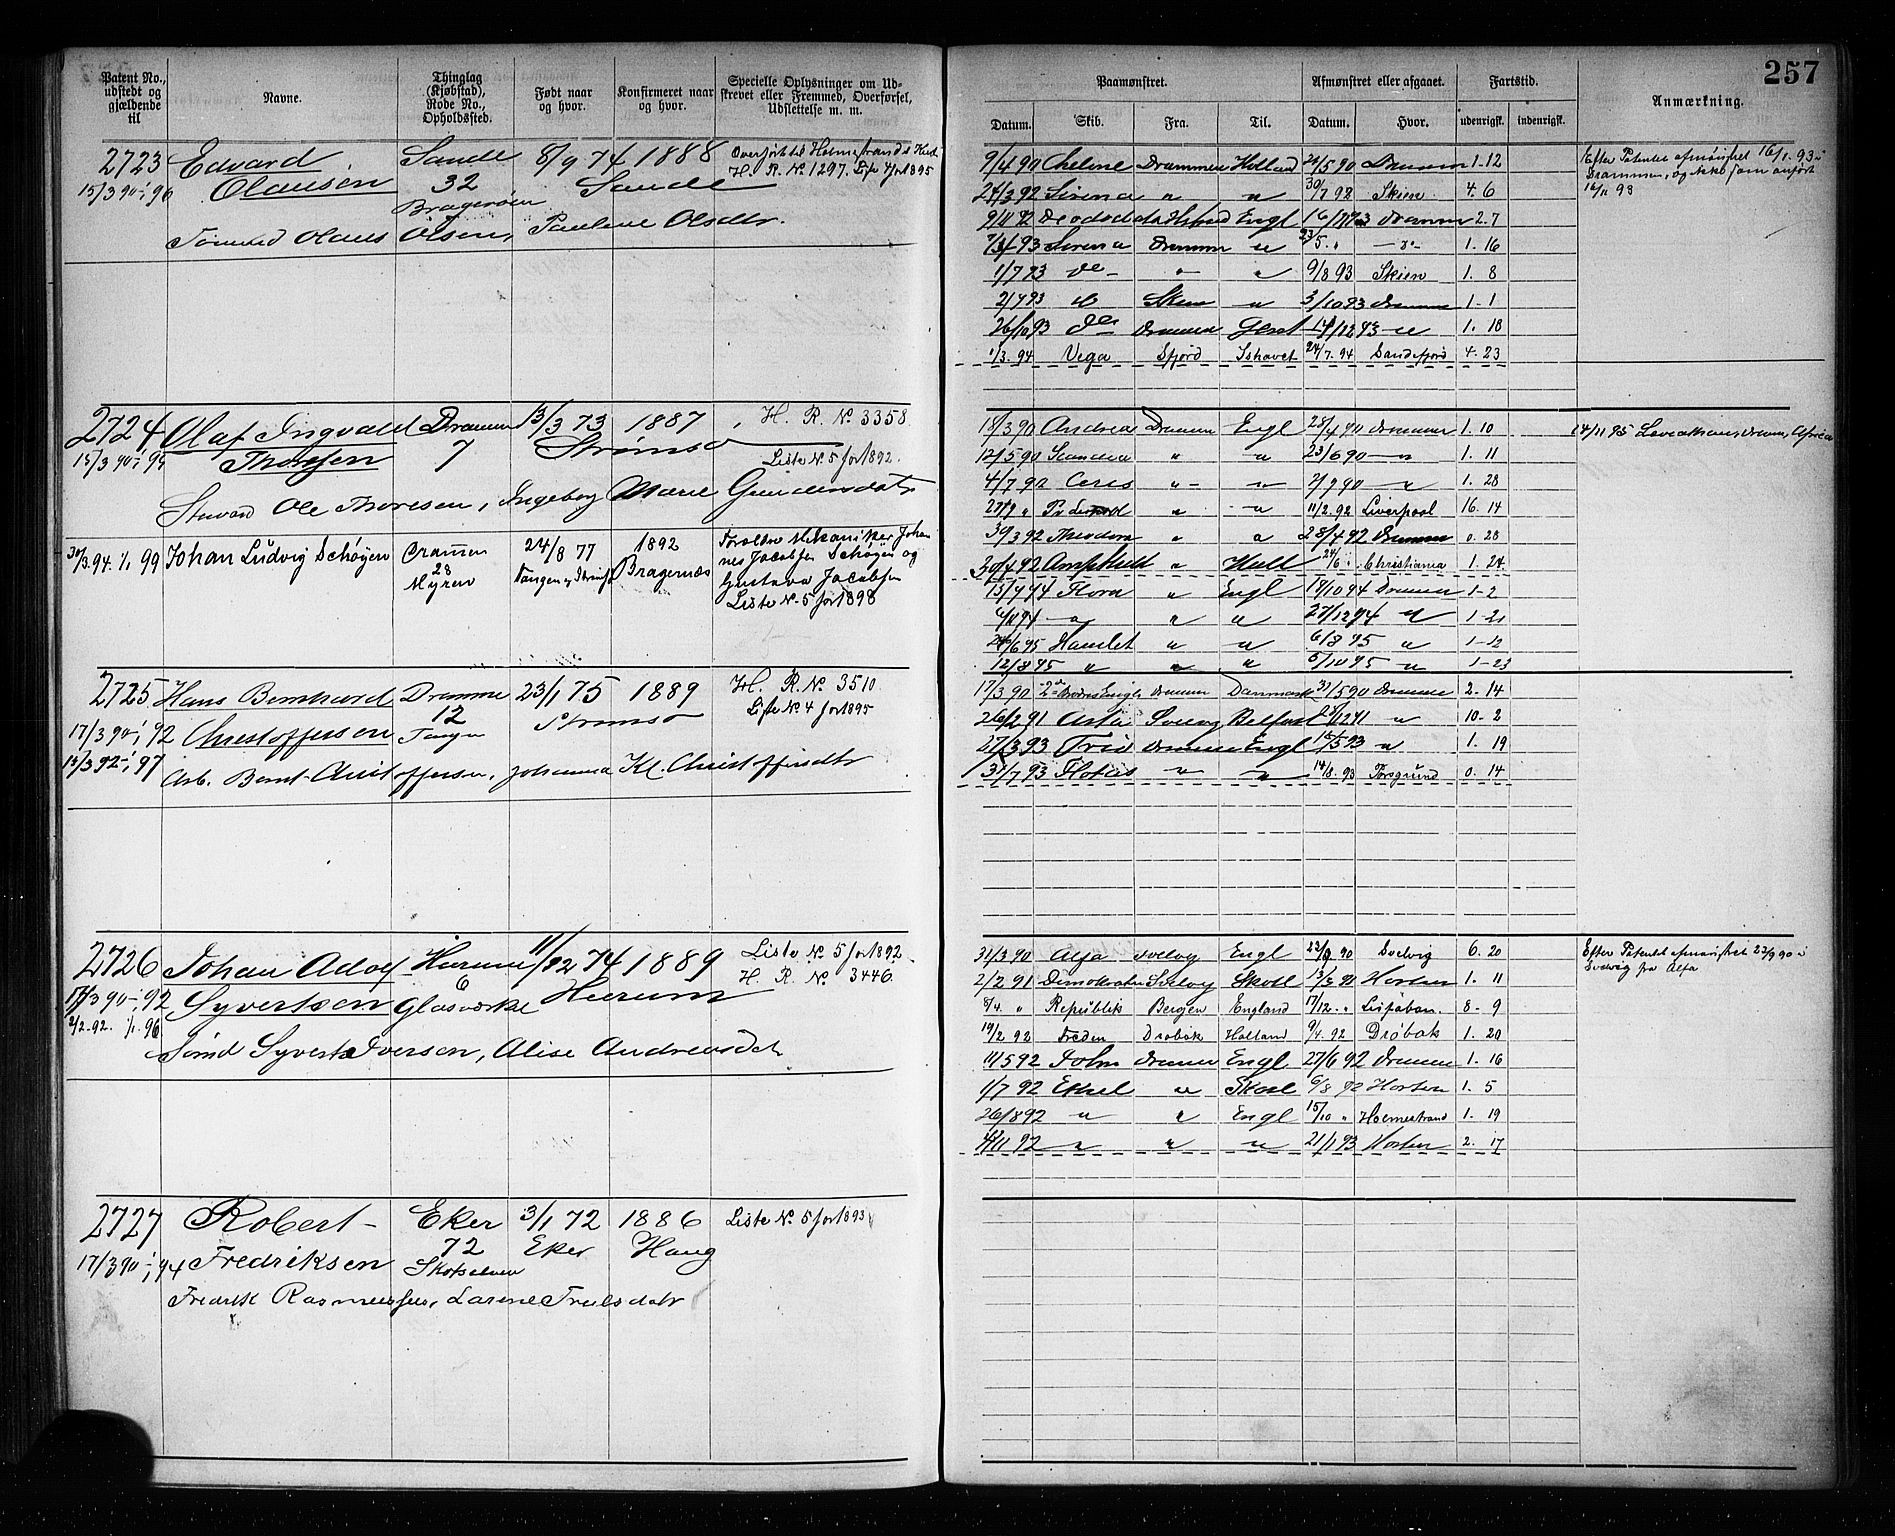 257
Patent No., udstedt og gjældende til
Navne.
Thinglag (Kjøbstad), Rode No., Opholdssted.
Født naar og hvor.
Konfirmeret naar og hvor.
Specielle Oplysninger om Udskrevet eller Fremmed, Overførsel, Udslettelse m. m.
Paamønstret.
Afmønstret eller afgaaet.
Fartstid.
Anmærkning.
Datum. Skib. Fra. Til. Datum. Hvor. udenrigsk. indenrigsk.
2723 Edvard Sande 8/9 74 1888
15/3 90 - 1/1 96 Olausen 32 Sande
Bragerøen
Olaus Olsen, Pauline Olsdtr.
Overført til Holmestrands
H. R. No 1297. 1895
Drammen Holland Drammen 1-12
24/3 92 Sirena 30/7 92 Skien 4. 6
Engl 2. 7
Sirena Drammen 1. 16
1/7 93 9/8 93 Skien 1. 8
Skien 3/10 93 Drammen 1-1
26/10 93 Drammen 1. 18
1/3. 94 Vega Sfjord Ishavet 24/7. 94 Sandefjord 4. 23
Efter Patentet afmønstret 16/1 93 i
Drammen, og ikke som anført
16/11 93
2724 Olaf Ingvald Drammen 13/3 73 1887 H. R. No 3358
15/3 90 - 1/1 95 Thoresen 7 Strømsø
Liste No 5 for 1892.
Ole Thoresen, Ingeborg Marie Gundersdatr
18/3 90 Andrea Drammen Engl 28/4 90 Drammen 1. 10
12/5 90 23/6 90 1. 11
4/7 90 Ceres 1. 28
11/2. 92 Liverpool 16. 14
30/3 92 Theodora 28/4 92 Drammen 0. 28
30/4 92 Hull Christiania 1. 24.
13/9 94 Flora Engl 18/10 94 Drammen 1-2
27/12 94 1-21
24/6 95 Hamlet 6/8 95 1-12
12/8 95 5/10 95 1-23
30/3. 94. 1/1 99 Johan Ludvig Schøyen Drammen 24/8 77 1892
28 Tangen, Strømsø Bragernæs
Myren
Forældre Mekaniker Johan
nes Jacobsen Schøyen og
Gustava Jacobsen
Liste No. 5 for 1898
2725 Hans Bernhard Dramme 23/1 75 1889 H. R. No 3510
12 Strømsø Liste No 4 for 1895
17/3 90 - 1/1 92 Christoffersen Tangen
13/3 92 - 1/1 97
Arb. Bernt Christoffersen, Johanna Kl. Christoffersdtr
17/3 90 Drammen Danmark 31/5 90 Drammen 2-14
26/2 91 Asta Svelvig Belfast 10-2
27/3 93 Trio Drammen Engl 15/5 93 1. 19
31/7 93 14/8. 93 Porsgrund 0. 14
2726 Johan Adolf Hurum 11/12 74 1889 Liste No 5 for 1892
6 H. R. No 3446
17/3 90 - 1/1 92 Syvertsen Glasværket Hurum
2/2. 92. 1/1. 96
Syvert Iversen, Alise Andreasdat
31/3 90 Alfa Svelvig Engl Svelvig 6. 20
2/2 91 Demokraten Svelvig Skotl Horten 1. 11
8/4. " Republik Bergen England 17/12. " Lissabon. 8. 9
19/2 92 Freden Drøbak Holland 9/4. 92 Drøbak 1. 20
11/5 92 Drammen Engl 27/6 92 Drammen 1. 16
1/7 92 Skotl 6/8 92 Horten 1. 5
26/8 92 Engl 15/10 " Holmestrand 1. 19
21/1 93 Horten 2. 17
Efter Patentet afmønstret 22/9 90 i
Svelvig fra Alfa
2727 Robert Eker 3/1 72 1886 Liste No. 5 for 1893
72 Eker Haug
17/3 90 - 1/1 94 Fredriksen Skotselven
Fredrik Rasmussen, Larene Trulsdatr